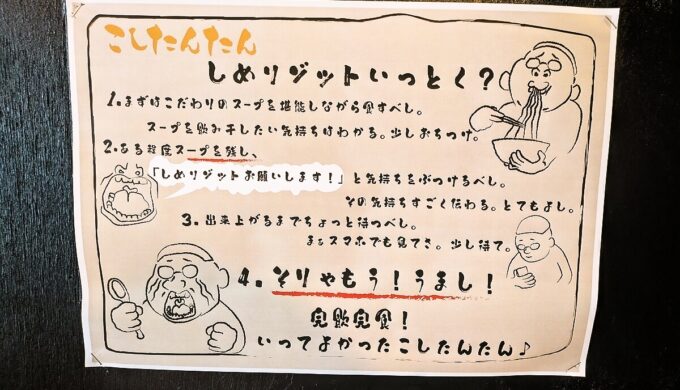 こしたんたん
しめリゾットいっとく?
1.まずはこだわりのスープを堪能しながら食すべし。
スープを飲み干したい気持ちはわかる。少しおちつけ。
2.ある程度スープを残し、
「しめリゾットお願いします!」と気持ちをぶつけるべし。
その気持ちすごく伝わる。とてもよし。
3.出来上がるまでちょっと待つべし。
まぁスマホでも見てさ。少し待て。
4.そりゃもう!うまし!
完飲完食!
いってよかったこしたんたん♪